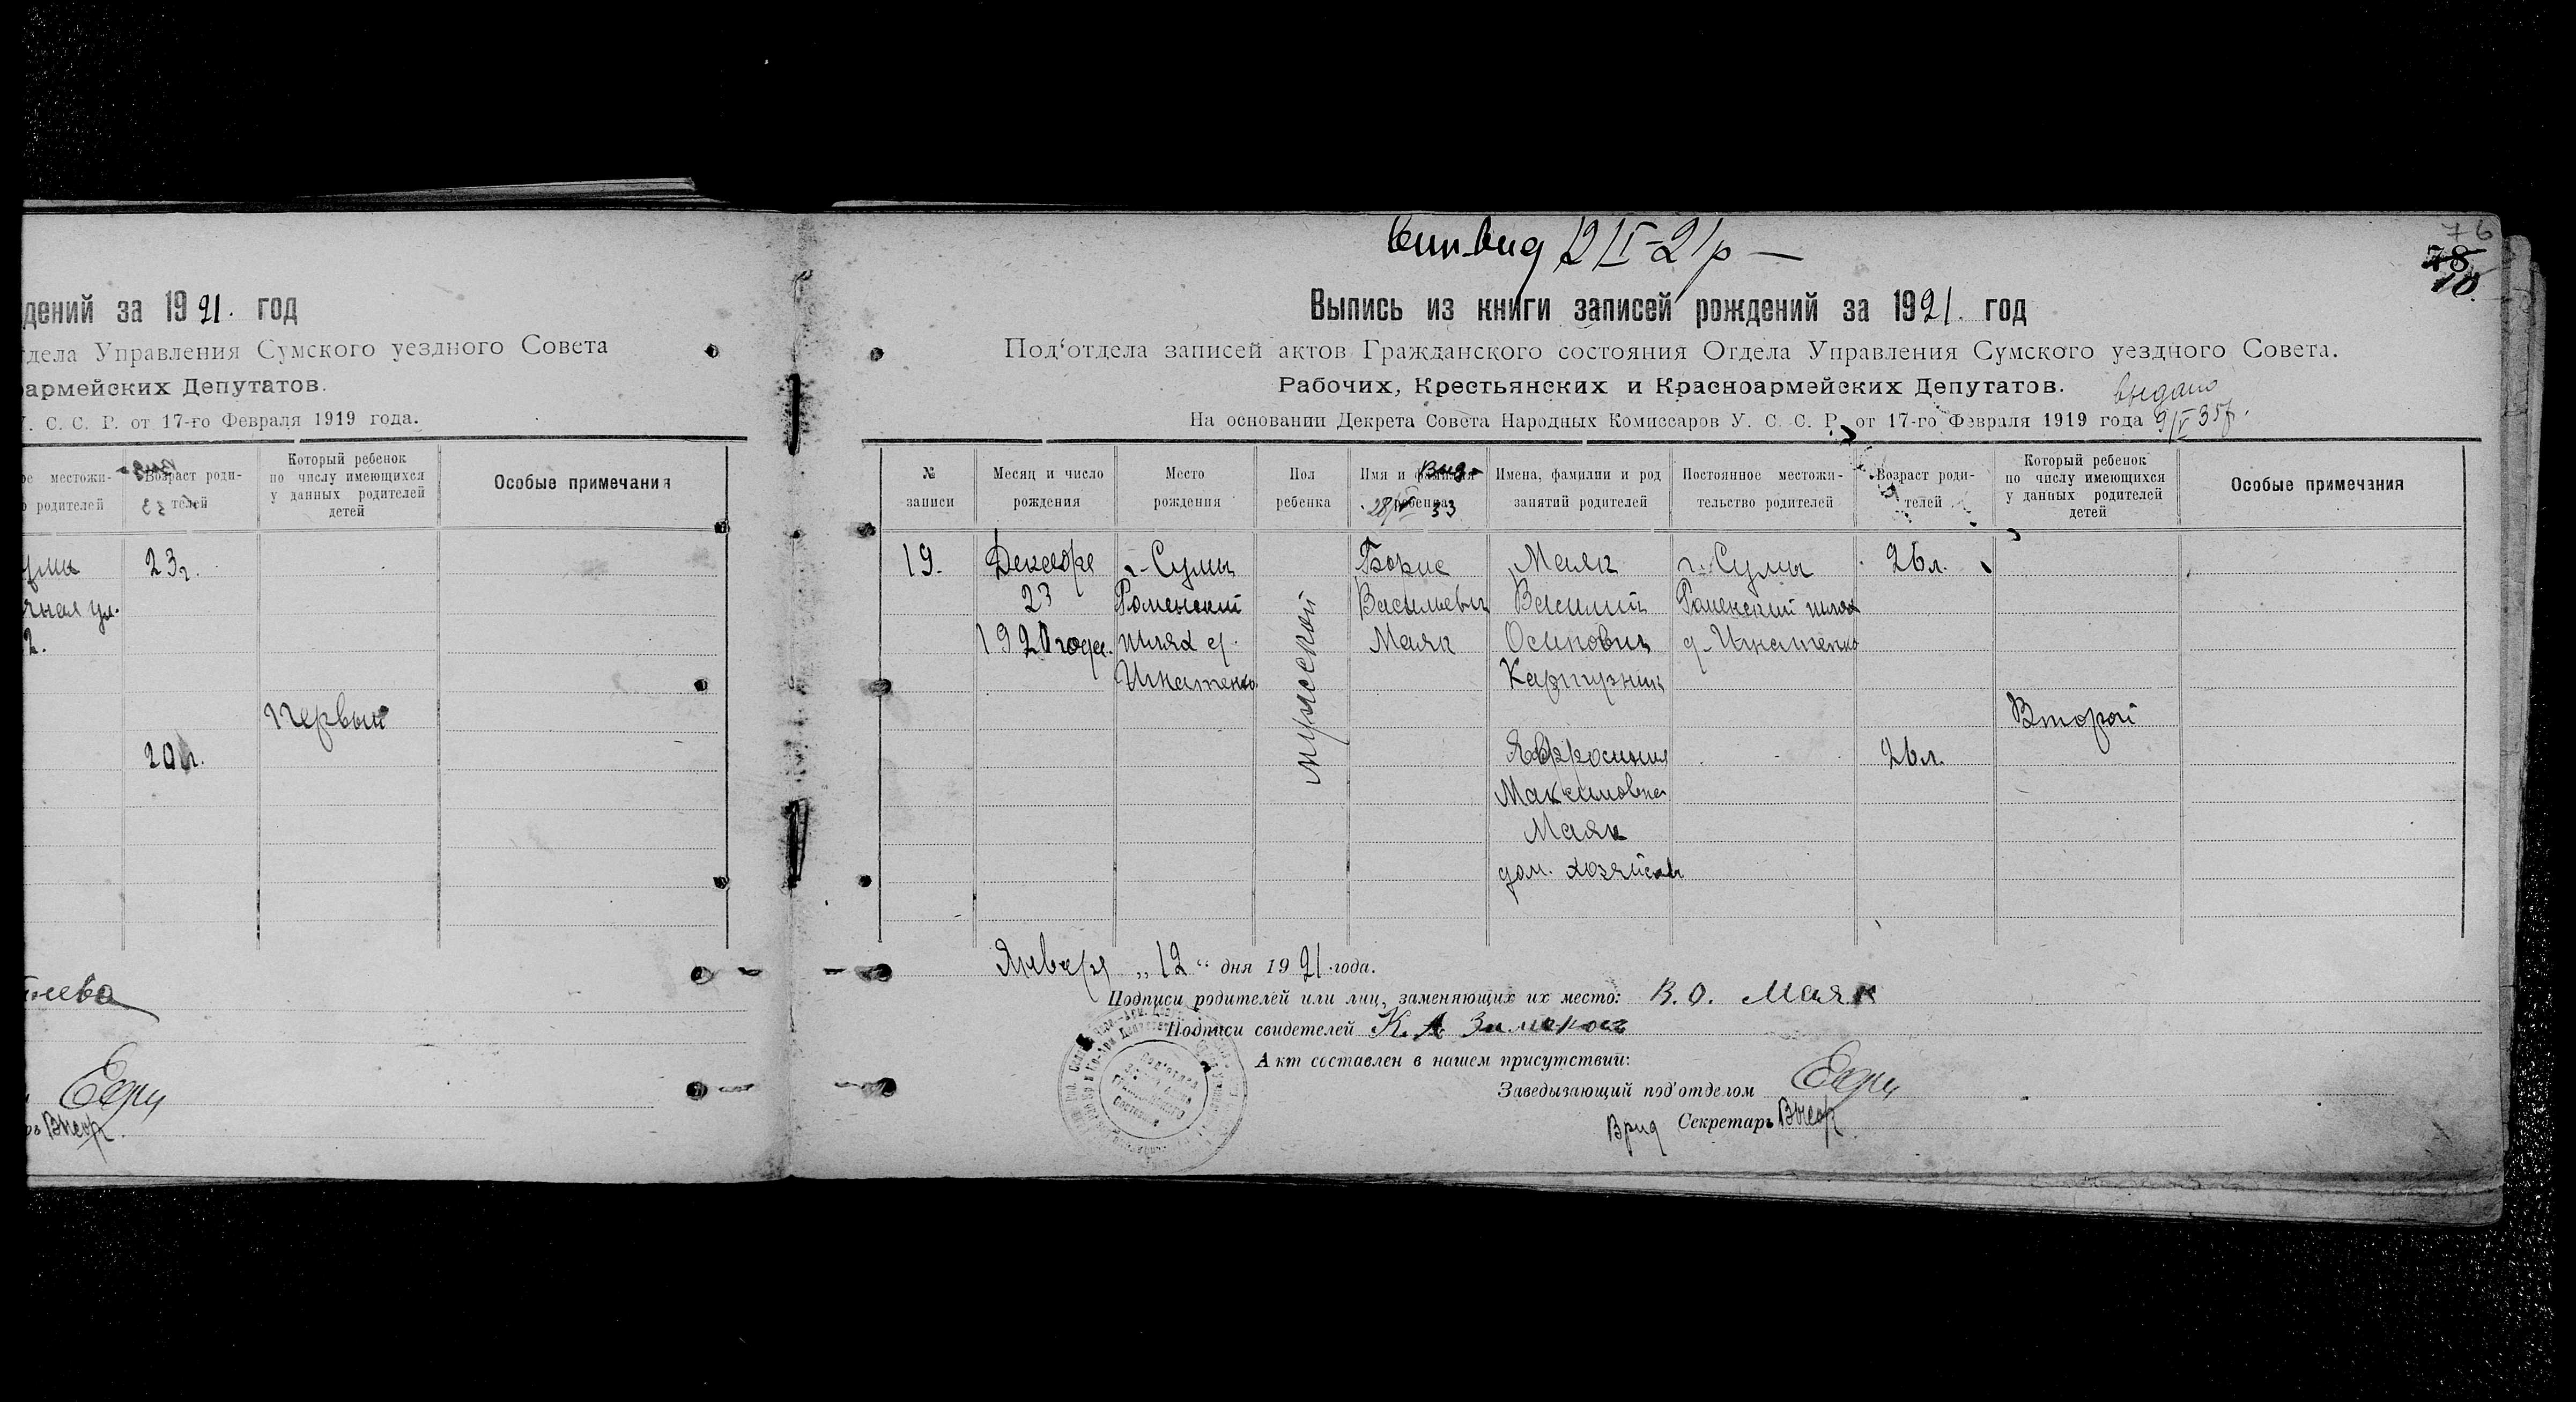 дений за 1921. год
тдела Управления Сумского уездного Совета
оармейских Депутатов.
У. С. С. Р. от 17-го Февраля 1919 года.
ое местожи-
о родителей
Возраст роди-
телей
33
Который ребенок
по числу имеющихся
у данных родителей
детей
Особые примечания
23г.
чная ул.
2.
Первый
20 л.
76
78
Выпись из книги записей рождений за 1921. год
Под‘отдела записей актов Гражданского состояния Отдела Управления Сумского уездного Совета.
Рабочих, Крестьянских и Красноармейских Депутатов.
выдано
На основании Декрета Совета Народных Комиссаров У. С. С. Р. от 17-го Февраля 1919 года 9/V 35р.
№
записи
Месяц и число
рождения
Место
рождения
Пол
ребенка
Имя и фамилия
ребенка
Имена, фамилии и род
занятий родителей
Постоянное местожи-
тельство родителей
Возраст роди-
телей
Который ребенок
по числу имеющихся
у данных родителей
детей
Особые примечания
19.
Декабря
23
1920 года.
г. Сумы
Роменский
шлях д.
Игнатенко
мужской
Борис
Васильевич
Маяк
Маяк
Василий
Осипович
Картузник
Явфросиния
Максимовна
Маяк
дом. хозяйств
г. Сумы
Роменский шлях
д. Игнатенко
26л.
26л.
Второй
Января „12“ дня 1921 года.
Подписи родителей или лиц, заменяющих их место: В. О. Маяк
Подписи свидетелей К. А
Акт составлен в нашем присутствии:
Заведывающий под‘отделом
Врид Секретарь